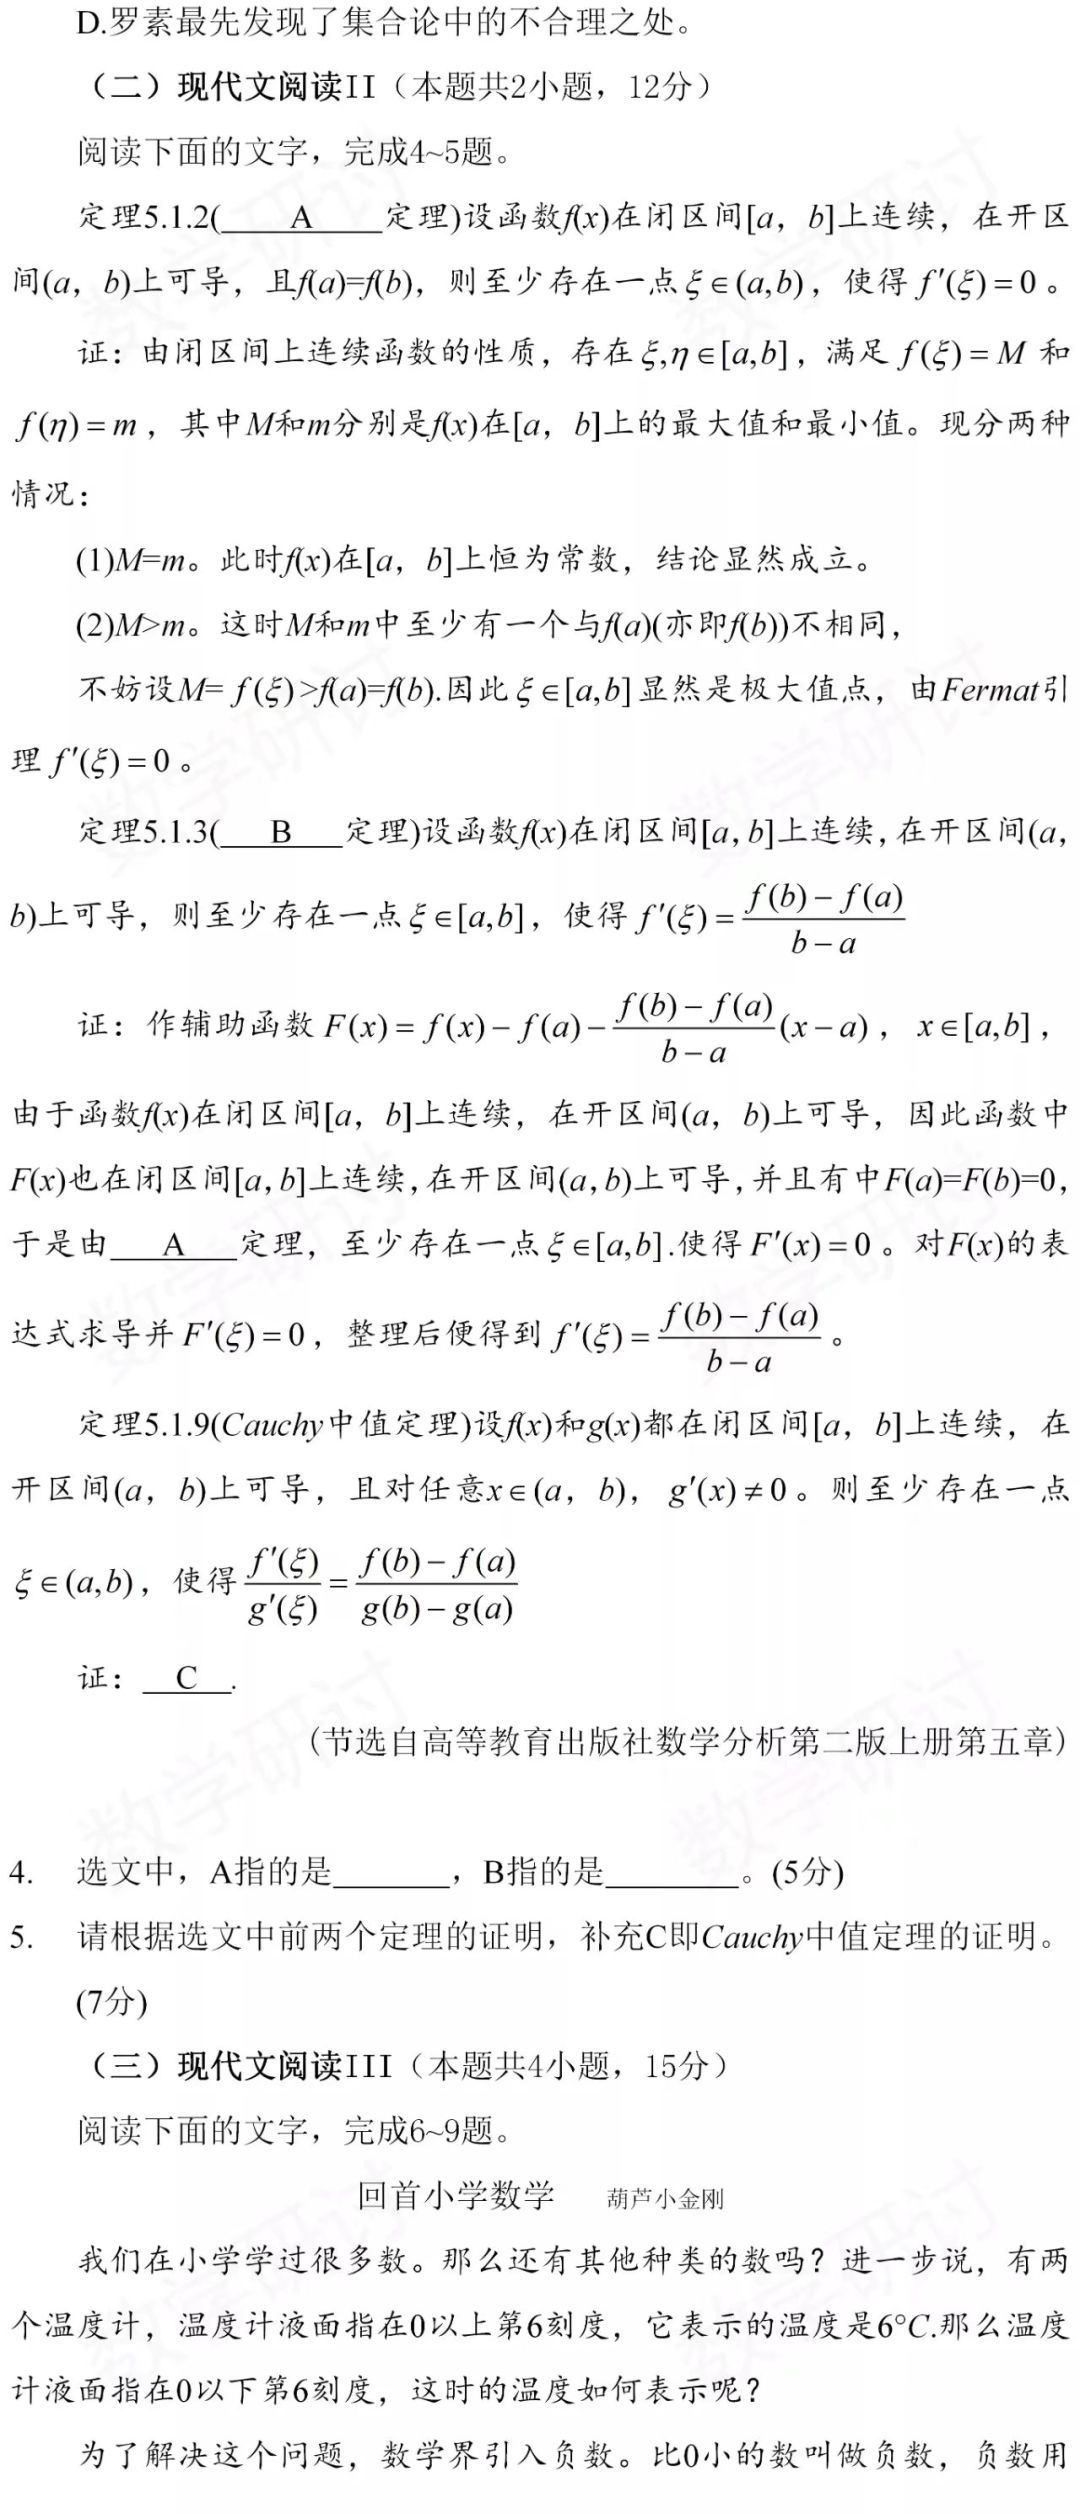 D.罗素最先发现了集合论中的不合理之处。
（二）现代文阅读II（本题共2小题，12分）
阅读下面的文字，完成4~5题。
定理5.1.2(____A____定理)设函数f(x)在闭区间[a，b]上连续，在开区
间(a，b)上可导，且f(a)=f(b)，则至少存在一点ξ∈(a,b)，使得f′(ξ)=0。
证：由闭区间上连续函数的性质，存在ξ,η∈[a,b]，满足f(ξ)=M和
f(η)=m，其中M和m分别是f(x)在[a，b]上的最大值和最小值。现分两种
情况：
(1)M=m。此时f(x)在[a，b]上恒为常数，结论显然成立。
(2)M>m。这时M和m中至少有一个与f(a)(亦即f(b))不相同，
不妨设M=f(ξ)>f(a)=f(b).因此ξ∈[a,b]显然是极大值点，由Fermat引
理f′(ξ)=0。
定理5.1.3(___B___定理)设函数f(x)在闭区间[a,b]上连续,在开区间(a,
b)上可导，则至少存在一点ξ∈[a,b]，使得f′(ξ)=(f(b)−f(a))/(b−a)
证：作辅助函数F(x)=f(x)−f(a)−(f(b)−f(a))/(b−a)(x−a)，x∈[a,b]，
由于函数f(x)在闭区间[a，b]上连续，在开区间(a，b)上可导，因此函数中
F(x)也在闭区间[a,b]上连续,在开区间(a,b)上可导,并且有中F(a)=F(b)=0,
于是由___A___定理，至少存在一点ξ∈[a,b].使得F′(x)=0。对F(x)的表
达式求导并F′(ξ)=0，整理后便得到f′(ξ)=(f(b)−f(a))/(b−a)。
定理5.1.9(Cauchy中值定理)设f(x)和g(x)都在闭区间[a，b]上连续，在
开区间(a，b)上可导，且对任意x∈(a，b)，g′(x)≠0。则至少存在一点
ξ∈(a,b)，使得f′(ξ)/g′(ξ)=(f(b)−f(a))/(g(b)−g(a))
证：__C__.
(节选自高等教育出版社数学分析第二版上册第五章)
4. 选文中，A指的是_______，B指的是________。(5分)
5. 请根据选文中前两个定理的证明，补充C即Cauchy中值定理的证明。
(7分)
（三）现代文阅读III（本题共4小题，15分）
阅读下面的文字，完成6~9题。
回首小学数学 葫芦小金刚
我们在小学学过很多数。那么还有其他种类的数吗？进一步说，有两
个温度计，温度计液面指在0以上第6刻度，它表示的温度是6°C.那么温度
计液面指在0以下第6刻度，这时的温度如何表示呢？
为了解决这个问题，数学界引入负数。比0小的数叫做负数，负数用